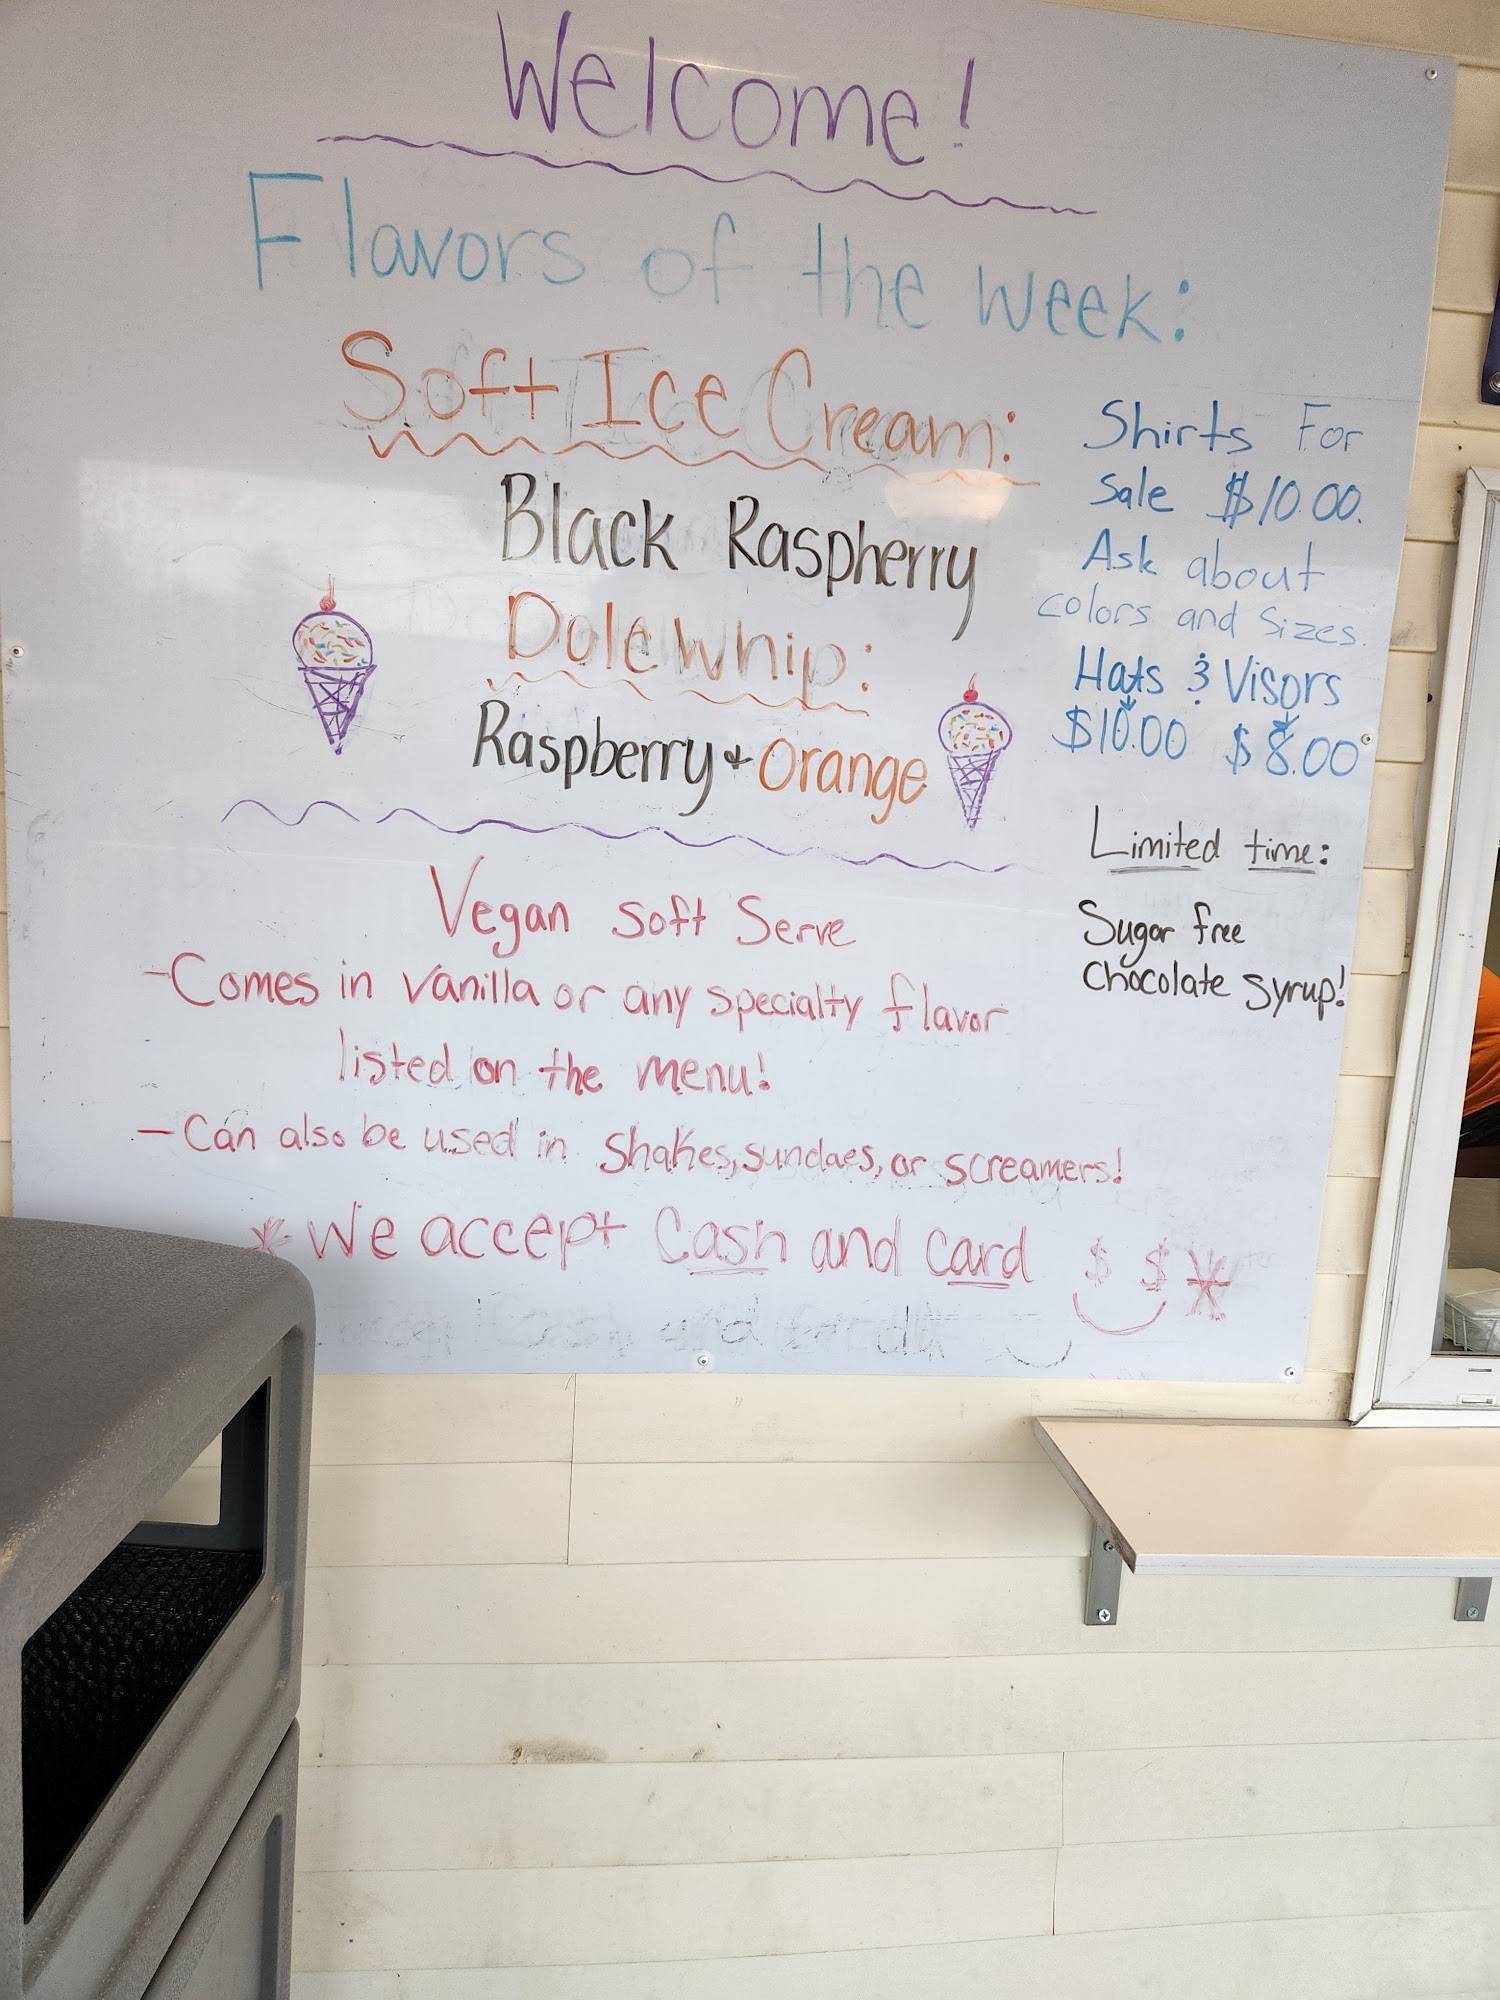 Welcome!
Flavors of the week:
Soft Ice Cream:
Black Raspberry
Dole Whip:
Raspberry + Orange
Vegan Soft Serve
- Comes in vanilla or any specialty flavor
listed on the menu!
- Can also be used in shakes, sundaes, or screamers!
* We accept Cash and card $ $ *
Shirts For
Sale $10.00.
Ask about
colors and Sizes.
Hats & Visors
$10.00 $8.00
Limited time:
Sugar free
Chocolate syrup!